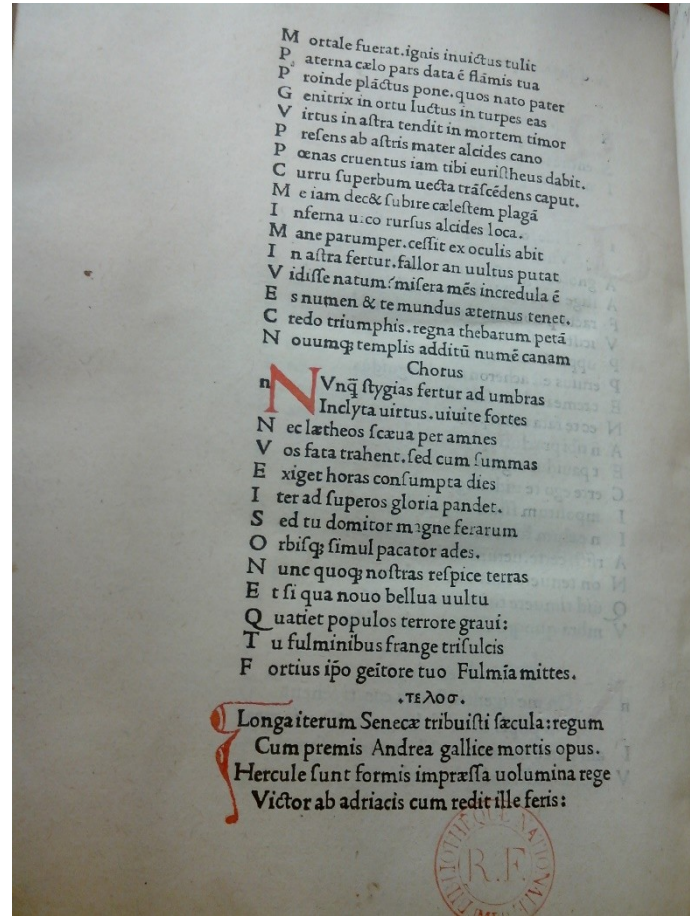 M ortale fuerat.ignis inuictus tulit
P aterna cælo pars data ē flāmis tua
P roinde plāctus pone.quos nato pater
G enitrix in ortu luctus in turpes eas
V irtus in astra tendit in mortem timor
P resens ab astris mater alcides cano
P œnas cruentus iam tibi euristheus dabit.
C urru superbum uecta trāscēdens caput.
M e iam dec& subire cælestem plagā
I nferna uico rursus alcides loca.
M ane parumper.cessit ex oculis abit
I n astra fertur.fallor an uultus putat
V idisse natum?misera mēs incredula ē
E s numen & te mundus æternus tenet.
C redo triumphis.regna thebarum petā
N ouumq; templis additū numē canam
Chorus
n NVnq̄ stygias fertur ad umbras
Inclyta uirtus.uiuite fortes
N ec lætheos scæua per amnes
V os fata trahent.sed cum summas
E xiget horas consumpta dies
I ter ad superos gloria pandet.
S ed tu domitor magne ferarum
O rbisq; simul pacator ades.
N unc quoq; nostras respice terras
E t si qua nouo bellua uultu
Q uatiet populos terrore graui:
T u fulminibus frange trisulcis
F ortius ip̄o geītore tuo Fulmīa mittes.
.τελοσ.
Longa iterum Senecæ tribuisti sæcula:regum
Cum premis Andrea gallice mortis opus.
Hercule sunt formis impræssa uolumina rege
Victor ab adriacis cum redit ille feris:
BIBLIOTHÈQUE NATIONALE
R.F.